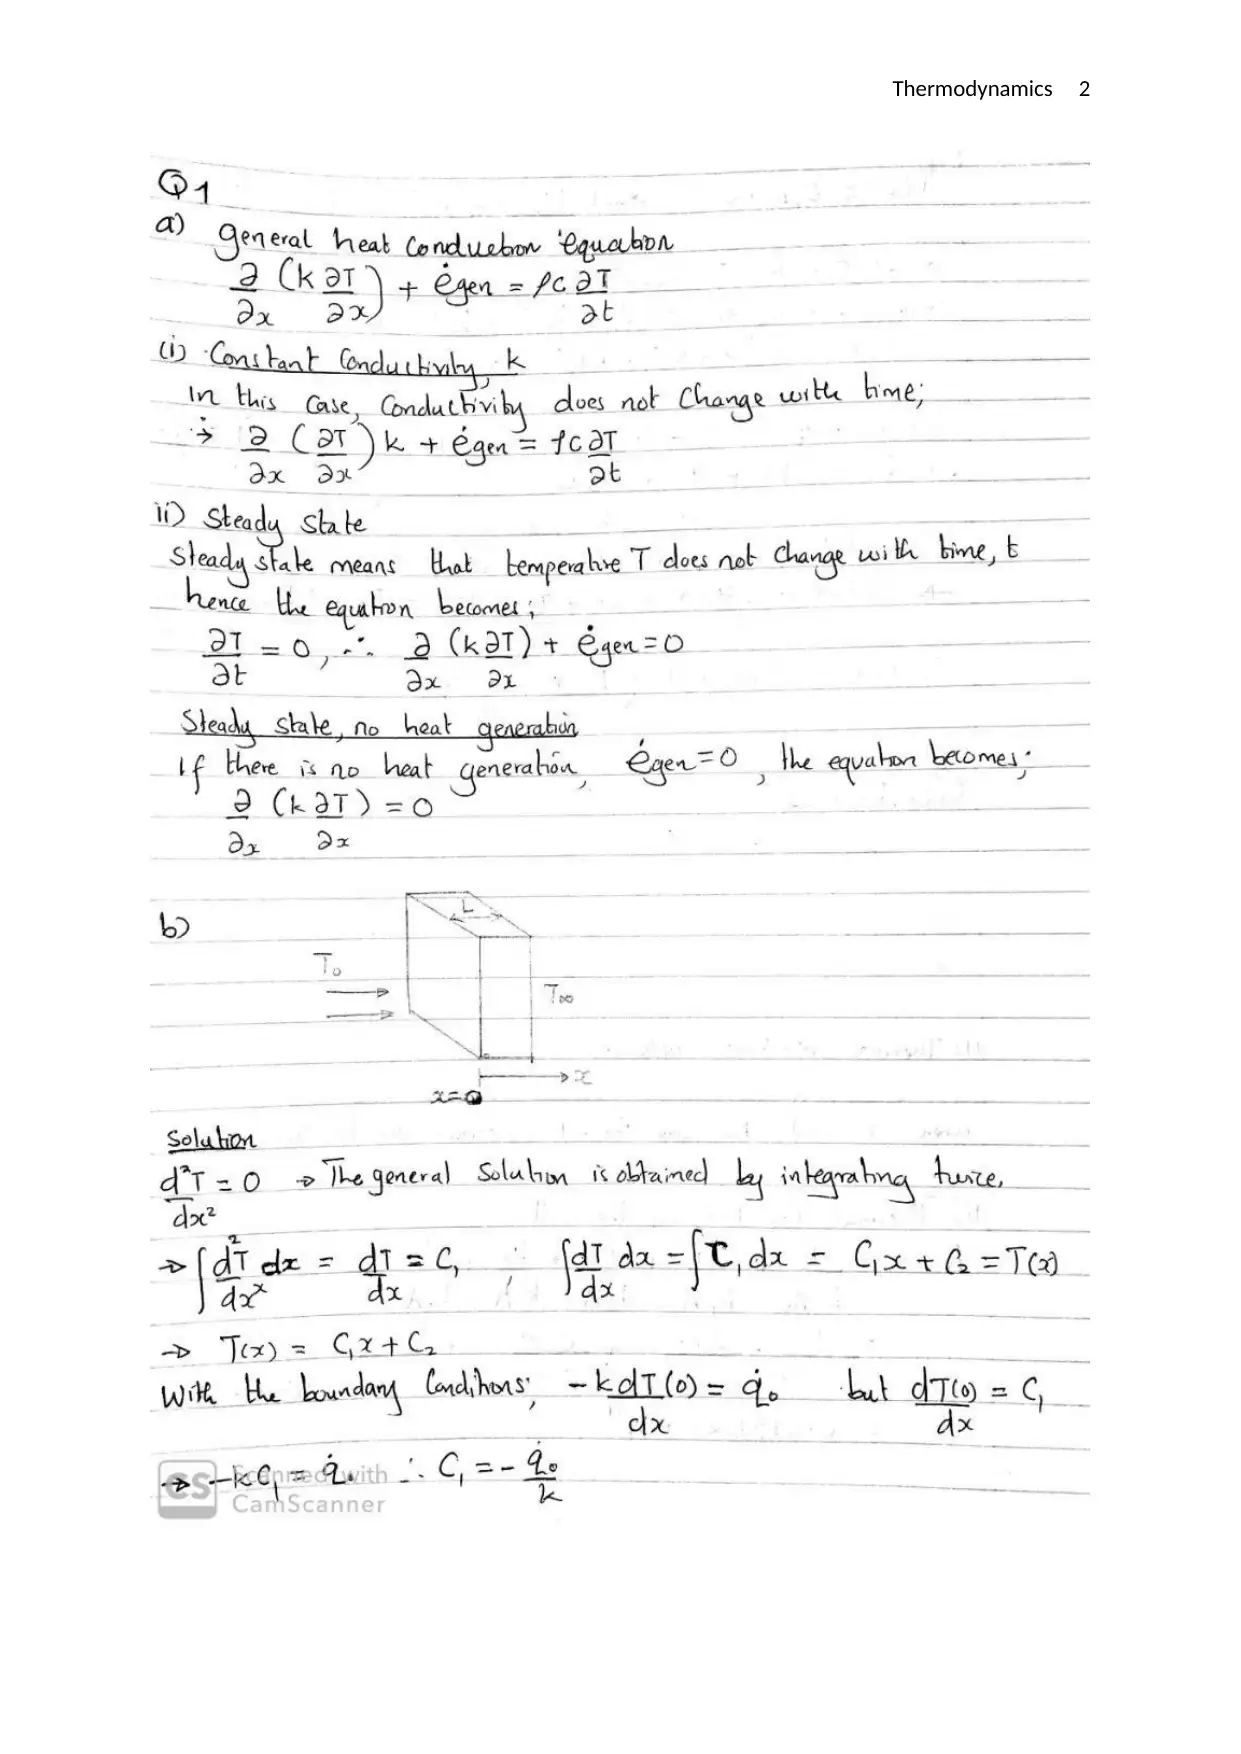 Thermodynamics 2
Q1
a) general heat Conduction equation
∂/∂x (k ∂T/∂x) + ėgen = ρc ∂T/∂t
(i) Constant Conductivity, k
In this Case, Conductivity does not Change with time;
∴→ ∂/∂x (∂T/∂x) k + ėgen = ρc ∂T/∂t
ii) Steady State
Steady State means that temperature T does not Change with time, t
hence the equation becomes;
∂T/∂t = 0, ∴ ∂/∂x (k ∂T/∂x) + ėgen = 0
Steady State, no heat generation
If there is no heat generation, ėgen = 0, the equation becomes;
∂/∂x (k ∂T/∂x) = 0
b)
L
T₀
T∞
x
x=0
Solution
d²T/dx² = 0 → The general Solution is obtained by integrating twice,
→ ∫ d²T/dx² dx = dT/dx = C₁ ∫ dT/dx dx = ∫ C₁ dx = C₁x + C₂ = T(x)
→ T(x) = C₁x + C₂
With the boundary Conditions; -k dT(0)/dx = q̇₀ but dT(0)/dx = C₁
→ -kC₁ = q̇₀ ∴ C₁ = - q̇₀/k
CS Scanned with
CamScanner